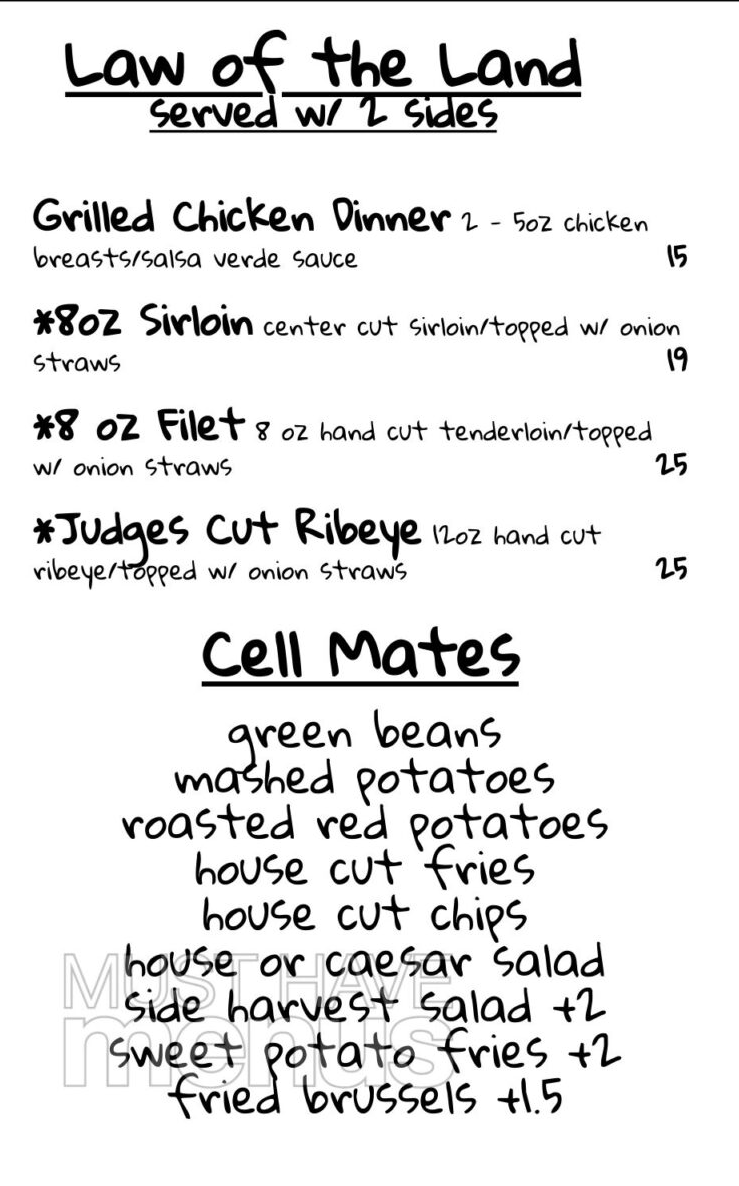 Law of the Land
served w/ 2 sides
Grilled Chicken Dinner 2 - 5oz chicken
breasts/salsa verde sauce 15
*8oz Sirloin center cut sirloin/topped w/ onion
straws 19
*8 oz Filet 8 oz hand cut tenderloin/topped
w/ onion straws 25
*Judges Cut Ribeye 12oz hand cut
ribeye/topped w/ onion straws 25
Cell Mates
green beans
mashed potatoes
roasted red potatoes
house cut fries
house cut chips
house or caesar salad
side harvest salad +2
sweet potato fries +2
fried brussels +1.5
MUST HAVE
menus